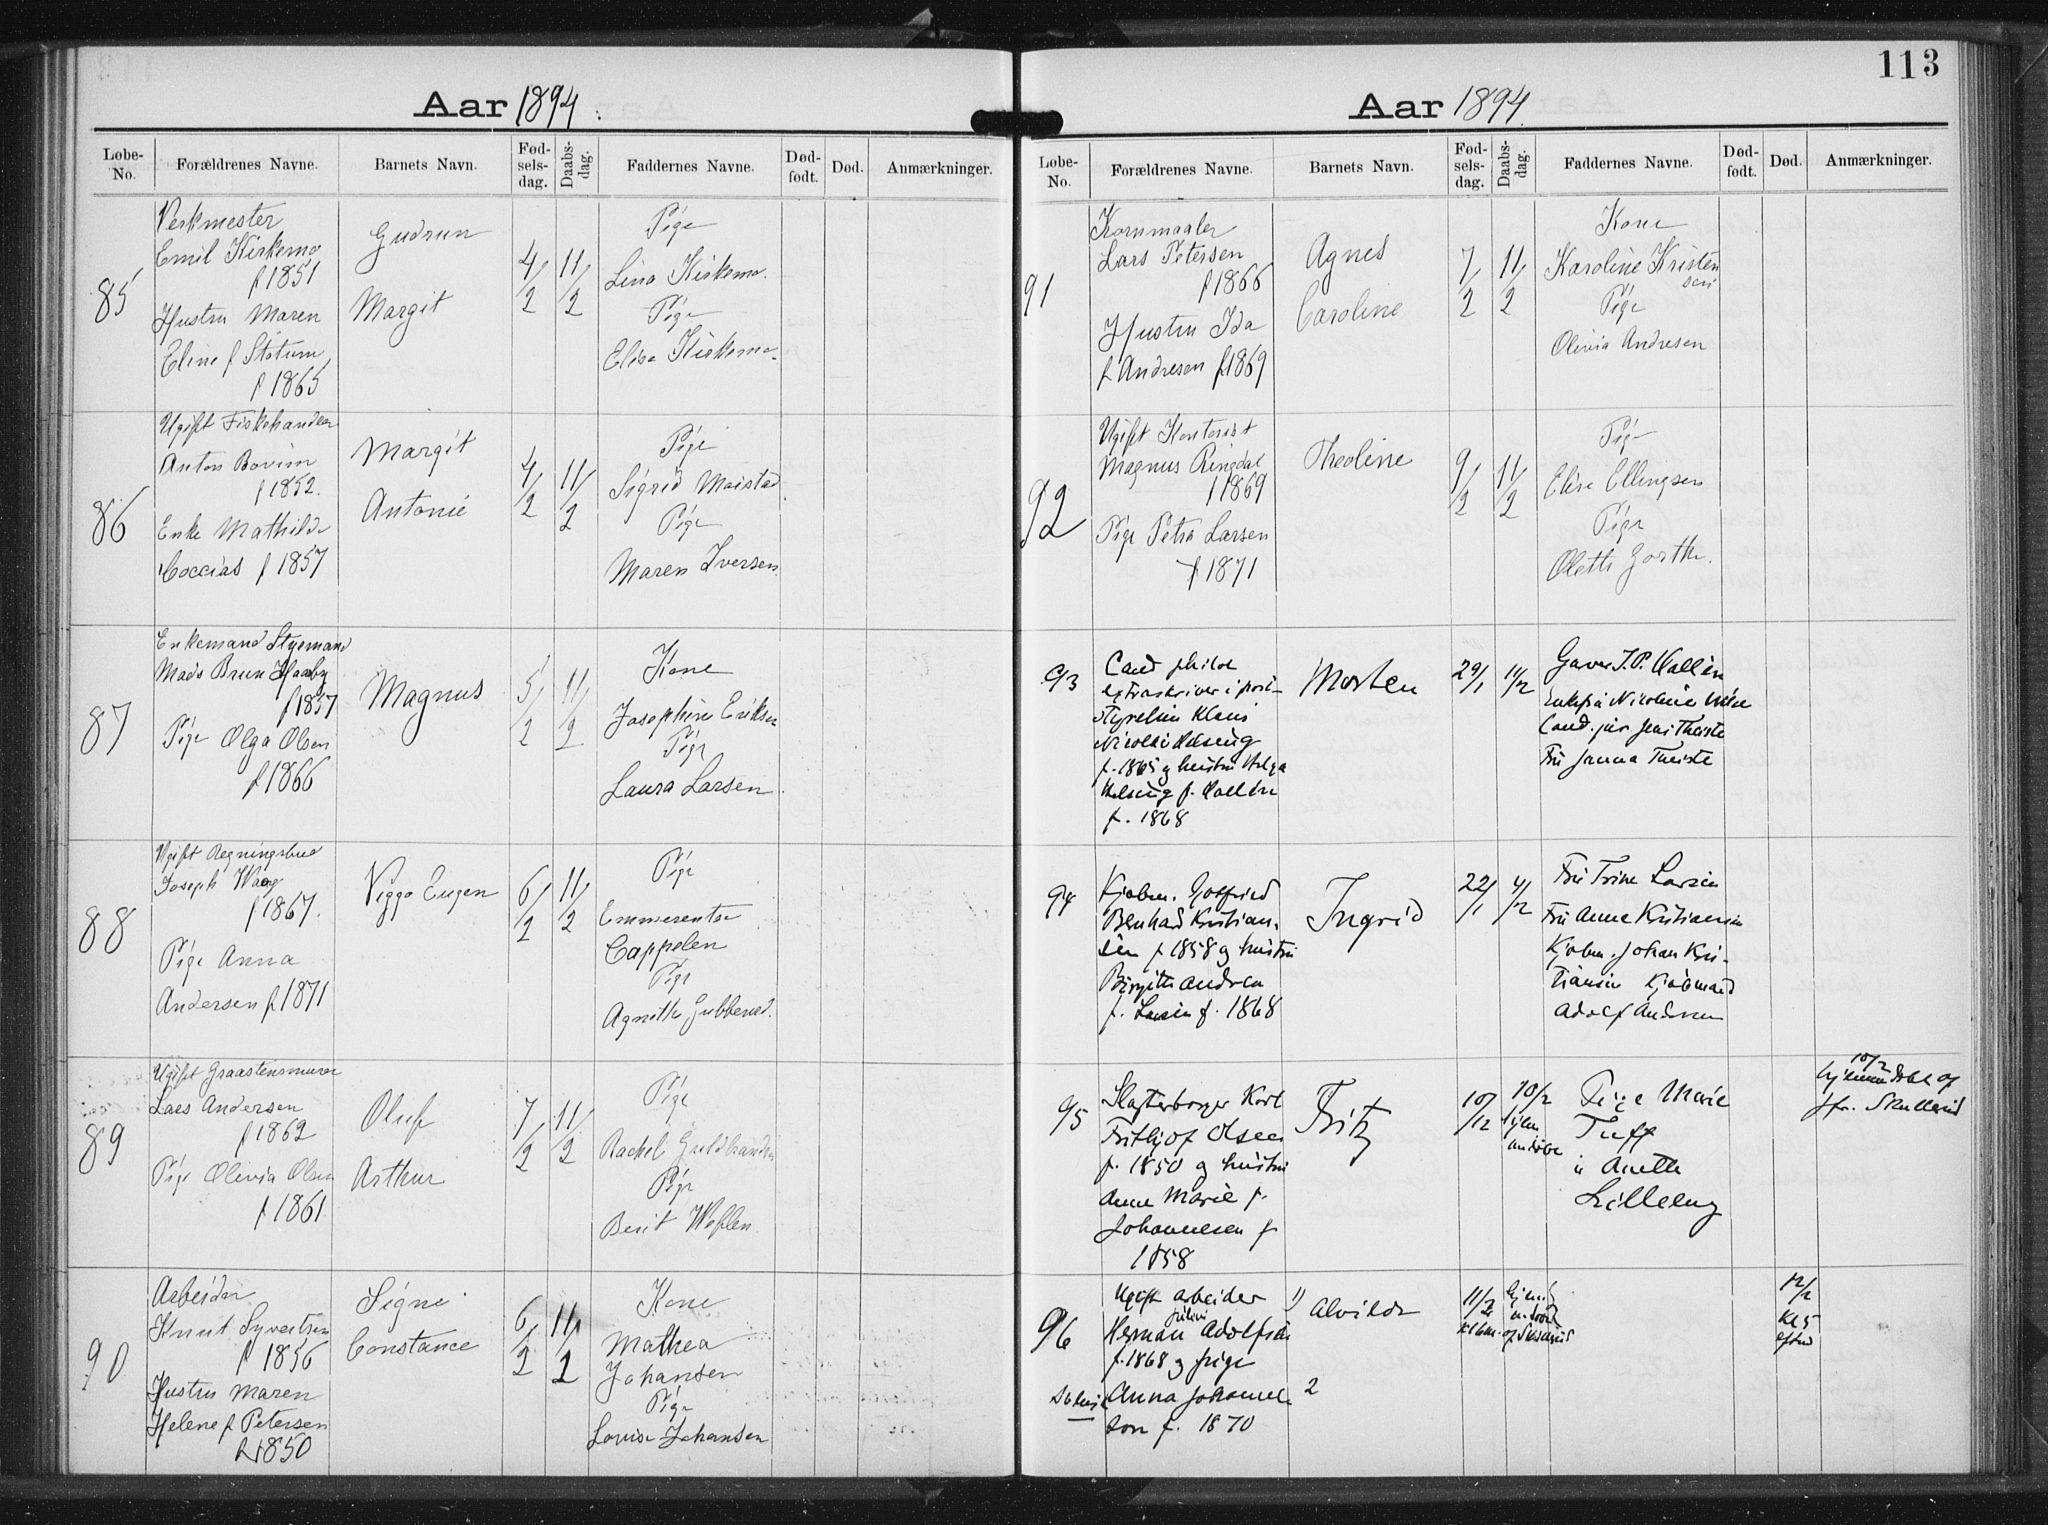 113
Aar 1894.
Løbe-No. Forældrenes Navne. Barnets Navn. Fød-sels-dag. Daabs-dag. Faddernes Navne. Død-født. Død. Anmærkninger.
85
Verkmester
Emil Kirkemo
f 1851
Hustru Maren
Eline f Støtum
f 1865
Gudrun
Margit
4/2
11/2
Pige
Lina Kirkemo.
Pige
Elisa Kirkemo.
86
Ugift Fiskehandler
Anton Bovim
f 1852.
Enke Mathilde
Coccias f 1857
Margit
Antonie
4/2
11/2
Pige
Sigrid Moistad.
Pige
Maren Iversen.
87
Enkemand Styrmand
Mads Brun Haaby
f 1857
Pige Olga Olsen
f 1866
Magnus
5/2
11/2
Kone
Josephine Eriksen
Pige
Laura Larsen.
88
Ugift Regningsbud
Joseph Waag
f 1867.
Pige Anna
Andersen f 1871
Viggo Eugen
6/2
11/2
Pige
Emmerentse
Cappelen
Pige
Agnethe
89
Ugift Graastensmurer
Lars Andersen
f 1862
Pige Olivia Olsen
f 1861
Oluf
Arthur
7/2
11/2
Pige
Rachel Guldbrandsen
Pige
Berit Weflen.
90
Arbeider
Knut Syvertsen
f 1856
Hustru Maren
Helene f Petersen
f 1850
Signe
Constance
6/2
11/2
Kone
Mathea
Johansen
Pige
Lovise Johansen
Aar 1894.
Løbe-No. Forældrenes Navne. Barnets Navn. Fød-sels-dag. Daabs-dag. Faddernes Navne. Død-født. Død. Anmærkninger.
91
Kornmaaler
Lars Petersen
f 1866
Hustru Ida
f Andresen f 1869
Agnes
Caroline
7/2
11/2
Kone
Karoline Kristen
sen
Pige
Olivia Andresen
92
Ugift Kontorist
Magnus Ringdal
f 1869
Pige Petra Larsen
f 1871
Theoline
9/2
11/2
Pige
Elise Ellingsen
Pige
Olette
93
Cand philos
extraskriver i post-
styrelsen Klaus
Nicolai Helsing
f. 1865 og hustru Helga
Helsing f. Hallén
f. 1868
Morten
29/1
11/2
J. P. Hallén
Enkefru Nicoline
Cand. jur Jens Theiste
Fru Janna Theiste
94
Kjøbm. Gotfried
Bernhard Kristian-
sen f 1858 og hustru
Birgitte Andrea
f. Larsen f. 1868
Ingrid
22/1
4/2
Fru Trine Larsen
Fru Anne Kristiansen
Kjøbm. Johan Kris-
tiansen Kjøbmand
Adolf Andersen
95
Slagterborger Karl
Fritjof Olsen
f. 1850 og hustru
Anne Marie f.
Johannesen f
1858
Fritz
10/12
10/2
hjem
medøbt
Pige Marie
Tuff
u Anette
Lilleeng
10/2
hjemmedøbt af
jfr. Skullerud
96
Ugift arbeider
Julius
Herman Adolfsen
f. 1868 og pige
Anna Johannes
sen f. 1870
1)
Alvilde
2
11/2
hjem
medøbt
af Skullerud
12/2
Kl 5
efterm